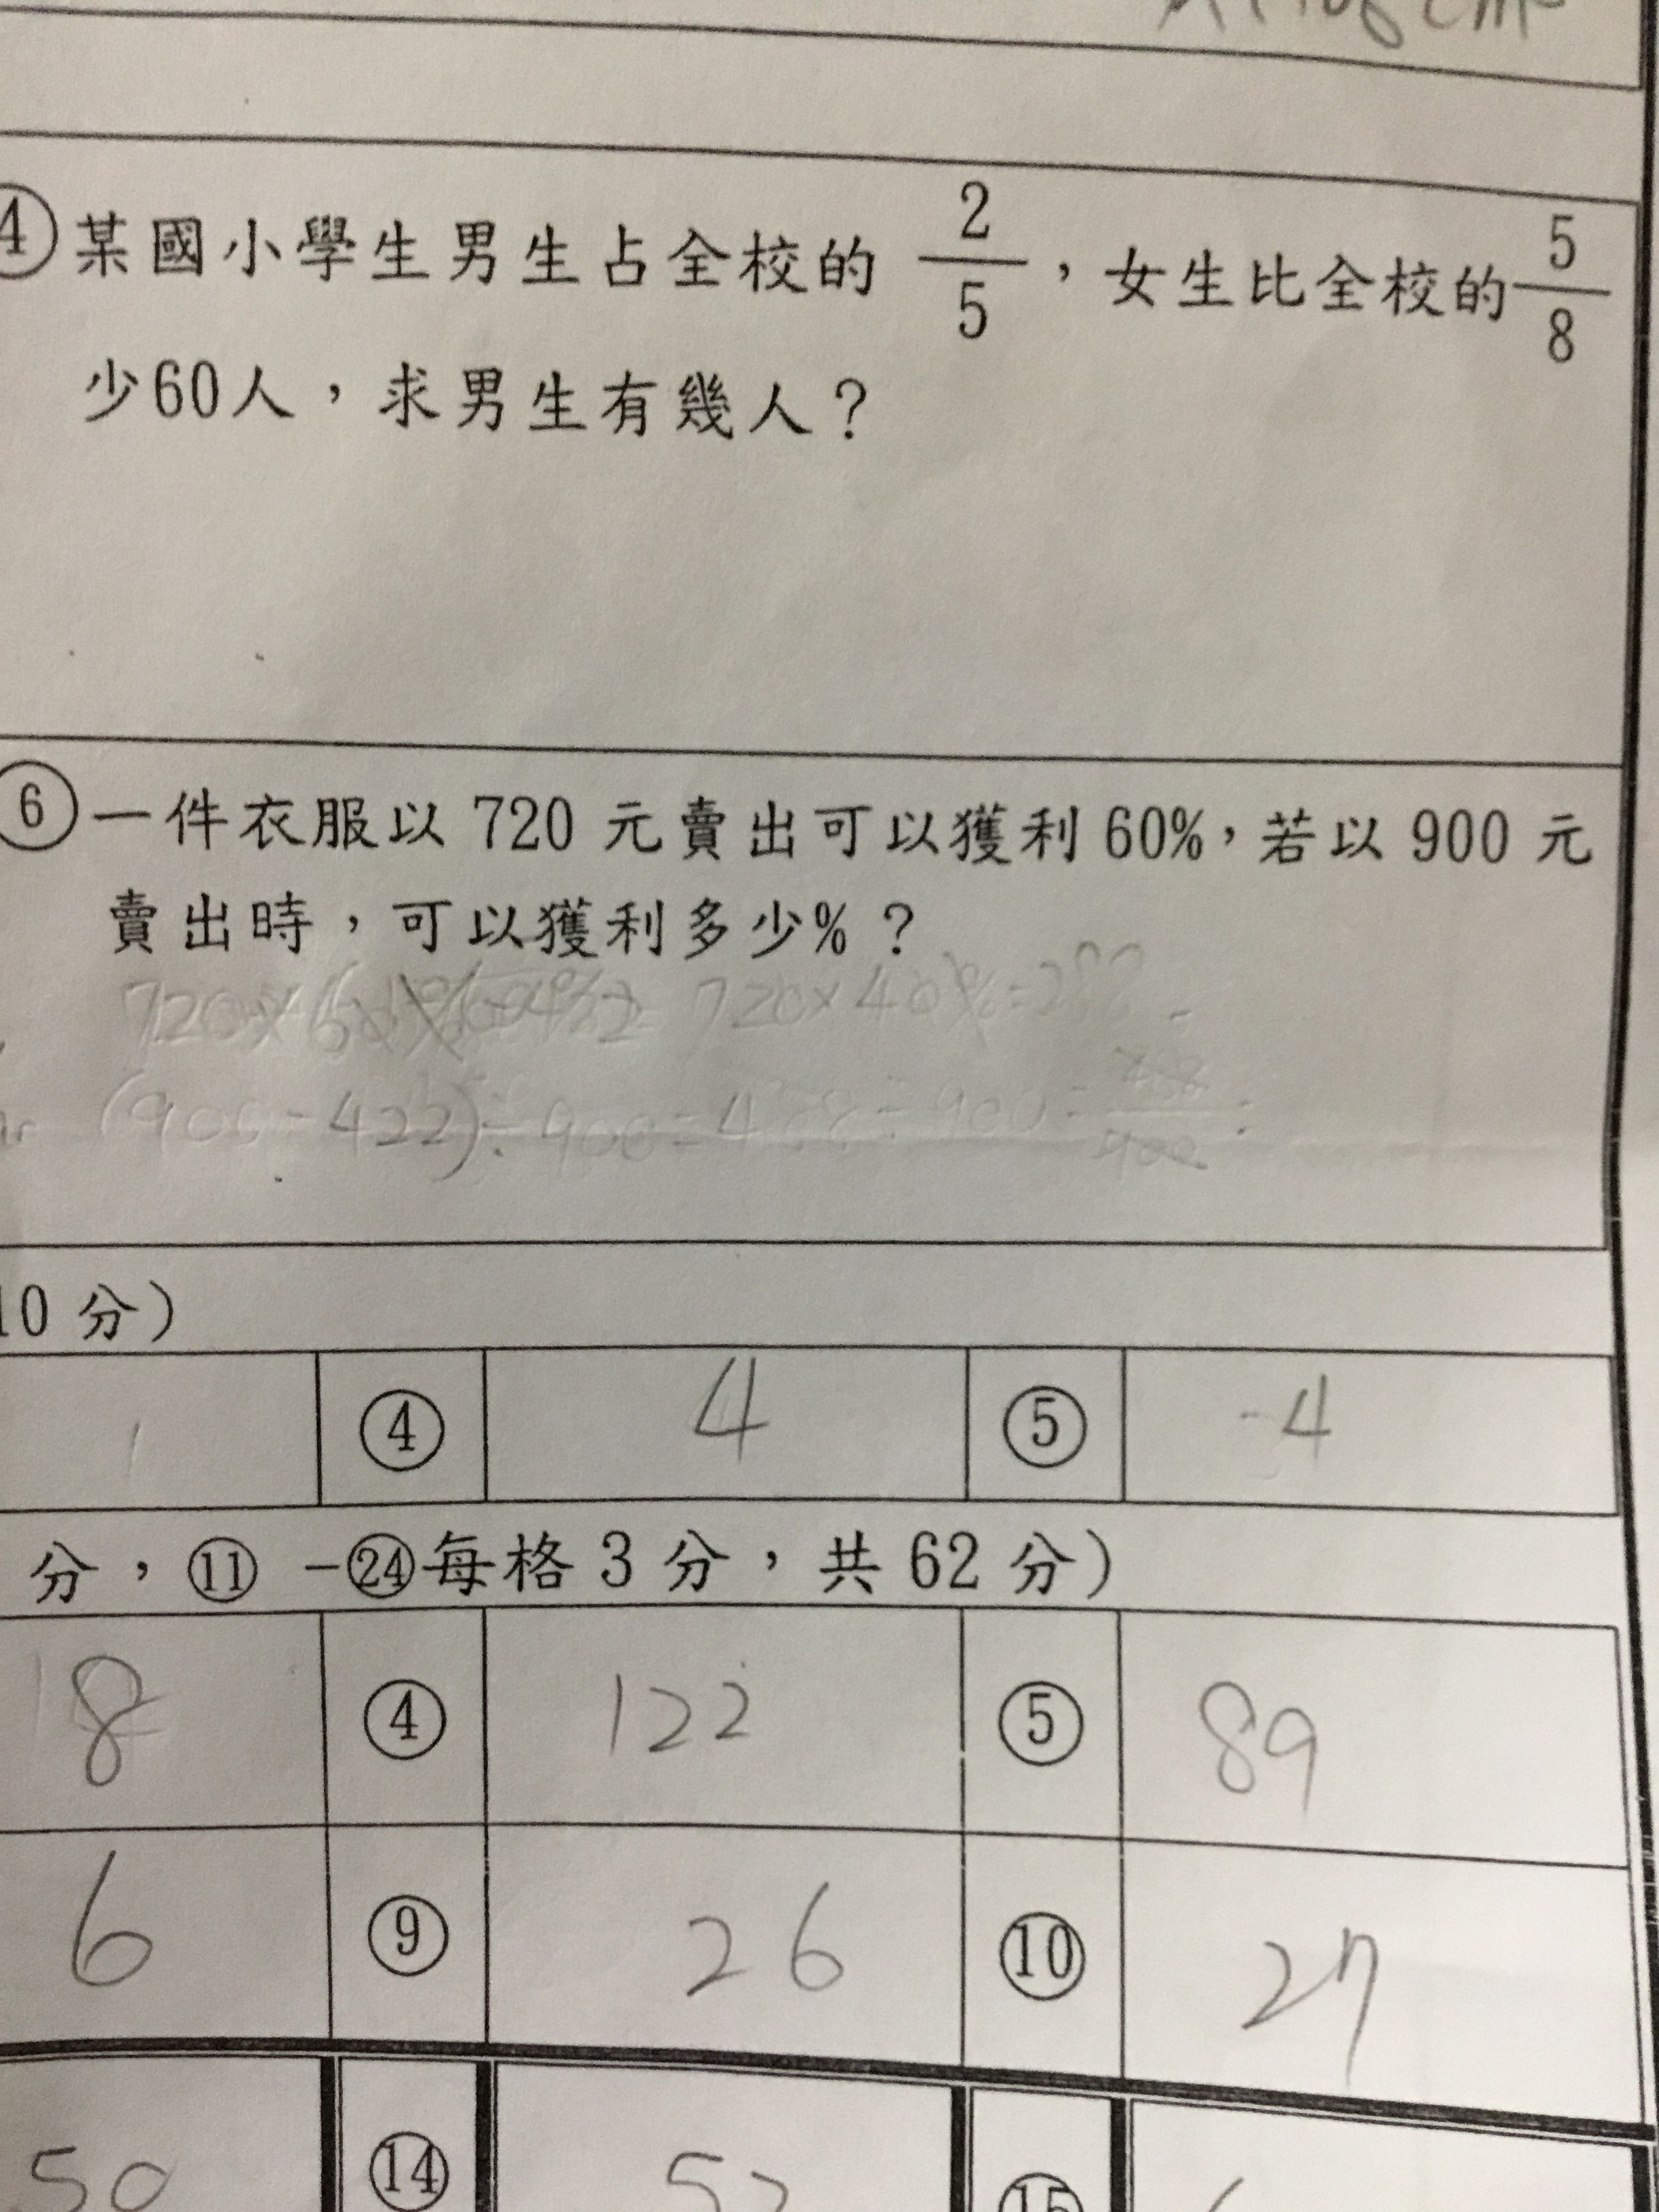 ④某國小學生男生占全校的 2/5，女生比全校的5/8
少60人，求男生有幾人？
⑥一件衣服以 720 元賣出可以獲利 60%，若以 900 元
賣出時，可以獲利多少%？
720× 720×40%=288
(900-422)÷900=468÷900=
10 分)
1 ④ 4 ⑤ -4
分，⑪ -㉔每格 3 分，共 62 分)
18 ④ 122 ⑤ 89
6 ⑨ 26 ⑩ 27
50 ⑭ 52 ⑮